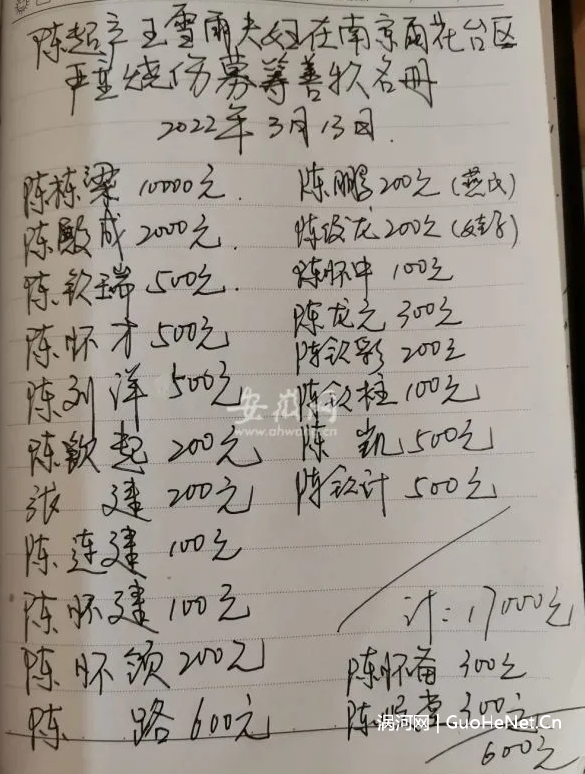 陈超 王雪雨夫妇在南京雨花台区
严重烧伤募筹善款名册
2022年3月13日.
陈栋梁 10000元
陈殿成 2000元
陈钦瑞 500元
陈怀才 500元
陈刘洋 500元
陈钦起 200元
张建 200元
陈连建 100元
陈怀建 100元
陈怀领 200元
陈路 600元
陈鹏 200元 (燕氏)
陈俊龙 200元
陈怀中 100元
陈龙元 300元
陈钦彩 200元
陈钦柱 100元
陈凯 500元
陈钦计 500元
计:17000元
陈怀奋 300元
陈 300元
600元
安徽网
www.ahwang.cn
涡河网 | GuoHeNet.Cn